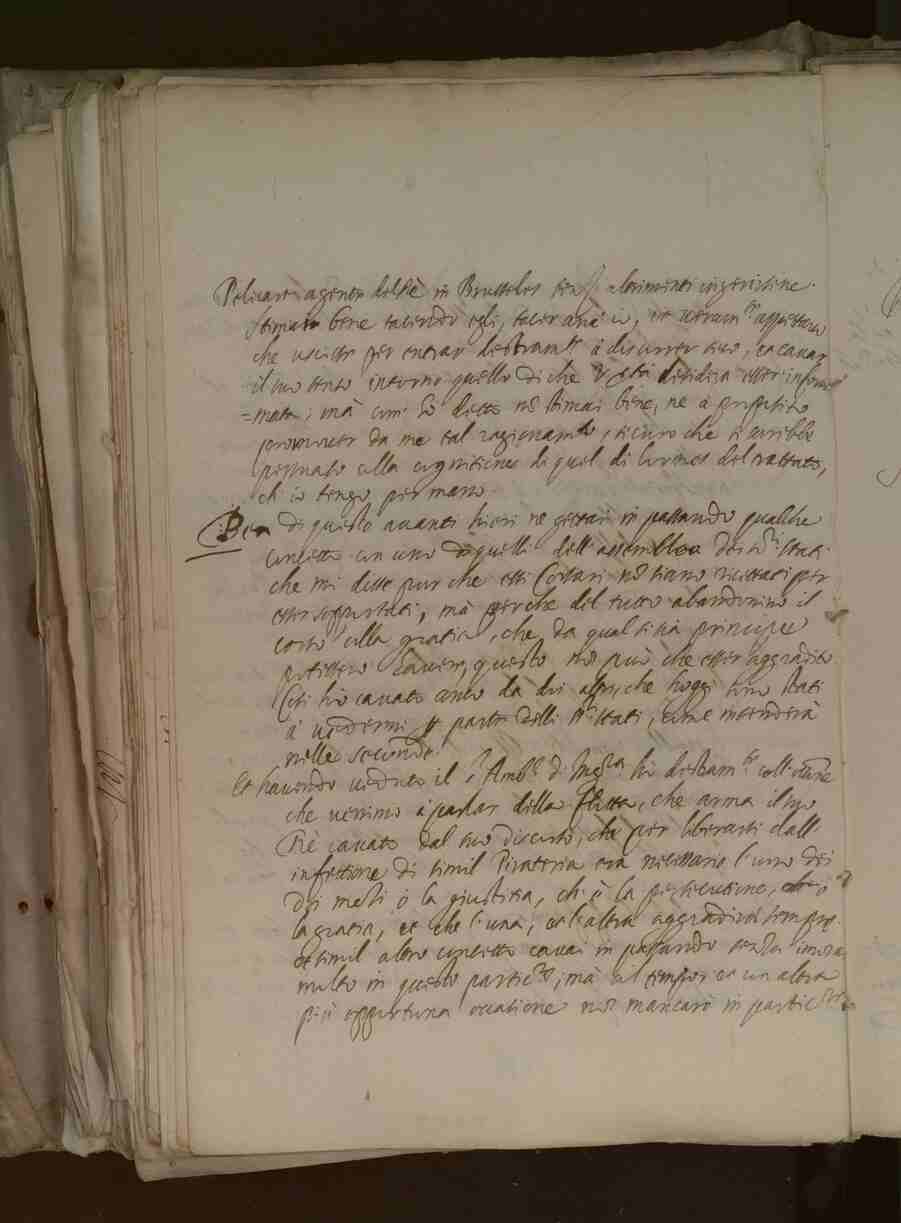 Pelicart agente del Rè in Brusselles senza altrimenti ingerirsene.
Stimato bene tacendo egli, tacer anch' io, et aspettavo
che uscisse per entrar destram.te à discorrer seco, et cavar
il suo senso intorno quello di che V. Ser.tà desidera esser infor
=mata; mà com' hò detto nõ stimai bene, ne à proposito
promover da me tal ragionam.to, sicuro che si sarebbe
pervenuto alla cognitione di quel di che del trattato,
ch' io tengo per mano.
Ben di questo avanti hieri ne gettai in passando qualche
concetto con uno di quelli dell' assemblea dei SS.ri Stati
che mi disse pur che essi Corsari nõ siano ricettati per
esser sopportati, mà perche del tutto abandonino il
corso alla gratia, che da qual si sia principe
potessero havere, questo nõ può che esser aggradito
Così hò cavato anco da doi altri, che hoggi sono stati
à vedermi per parte delli SS.ri Stati, come intenderà
nelle seconde.
Et havendo veduto il S.r Amb.r d' Ingh.ra hò destram.te coll' occ.ne
che venimo à parlar della flotta, che arma il suo
Rè cavato dal suo discorso, che per liberarsi dall'
infettione di simil Pirateria era necessario l' uno dei
doi modi ò la giustitia, ch' è la persecutione, ò
la gratia, et che l' una, et l' altra aggradirà sempre.
et simil altro concetto cavai in passando senza
molto in questo partic.re; mà col tempo et un altra
più opportuna occasione non mancarò in partic.re